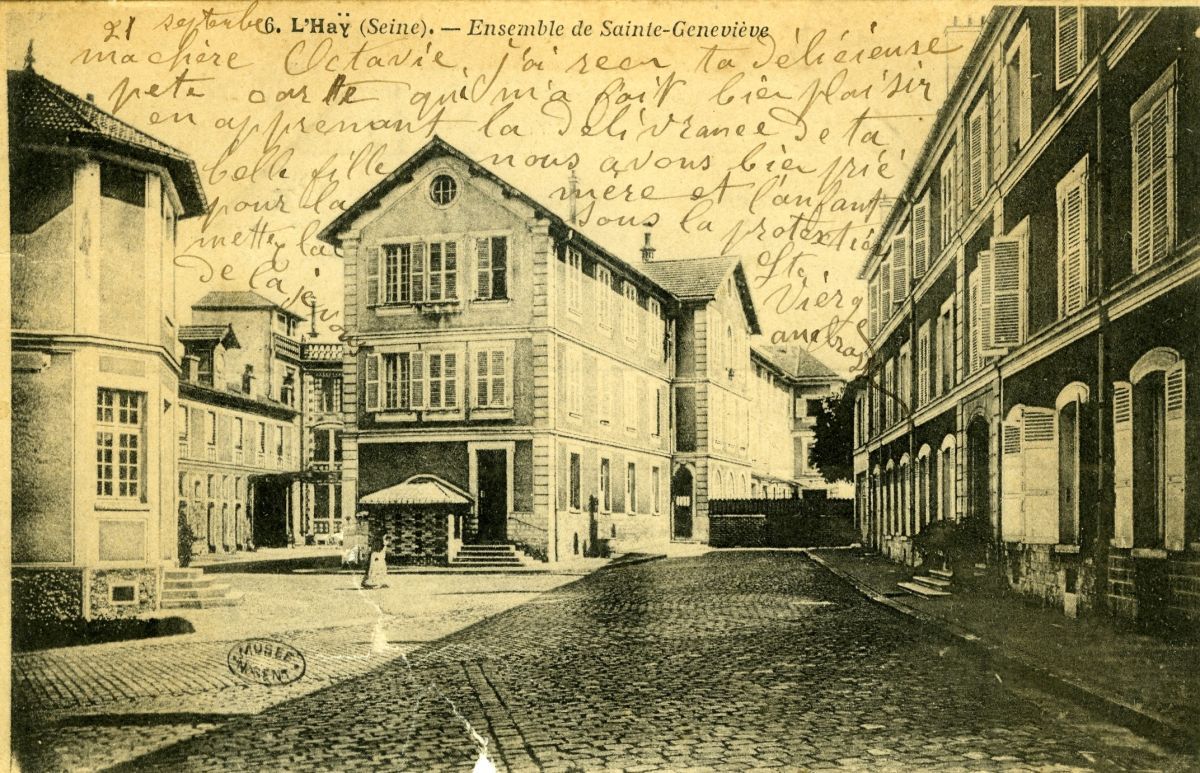 6. L'Haÿ (Seine). — Ensemble de Sainte-Geneviève
21 septembre
ma chère Octavie, j'ai recu ta délicieuse
pete carte qui m'a fait bien plaisir
en apprenant la délivrance de ta
belle fille nous avons bien prié
pour la mère et l'enfant
mette la sous la protextié
de la Ste
Vierg
MUSÉE
NOGENT